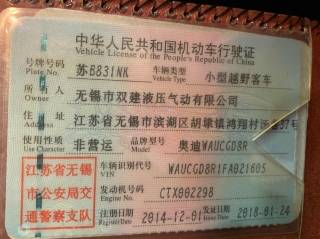 中华人民共和国机动车行驶证
Vehicle License of the People's Republic of China
号牌号码 苏B831NK 车辆类型 小型越野客车
Plate No. Vehicle Type
所有人 无锡市双建液压气动有限公司
Owner
住址 江苏省无锡市滨湖区胡埭镇鸿翔村
Address
使用性质 非营运 品牌型号 奥迪WAUCGD8R
Use Character Model
江苏省无锡 车辆识别代号 WAUCGD8R1FA021605
VIN
市公安局交 发动机号码 CTX002298
Engine No.
通警察支队 注册日期 2014-12-01 发证日期 2018-01-24
Register Date Issue Date